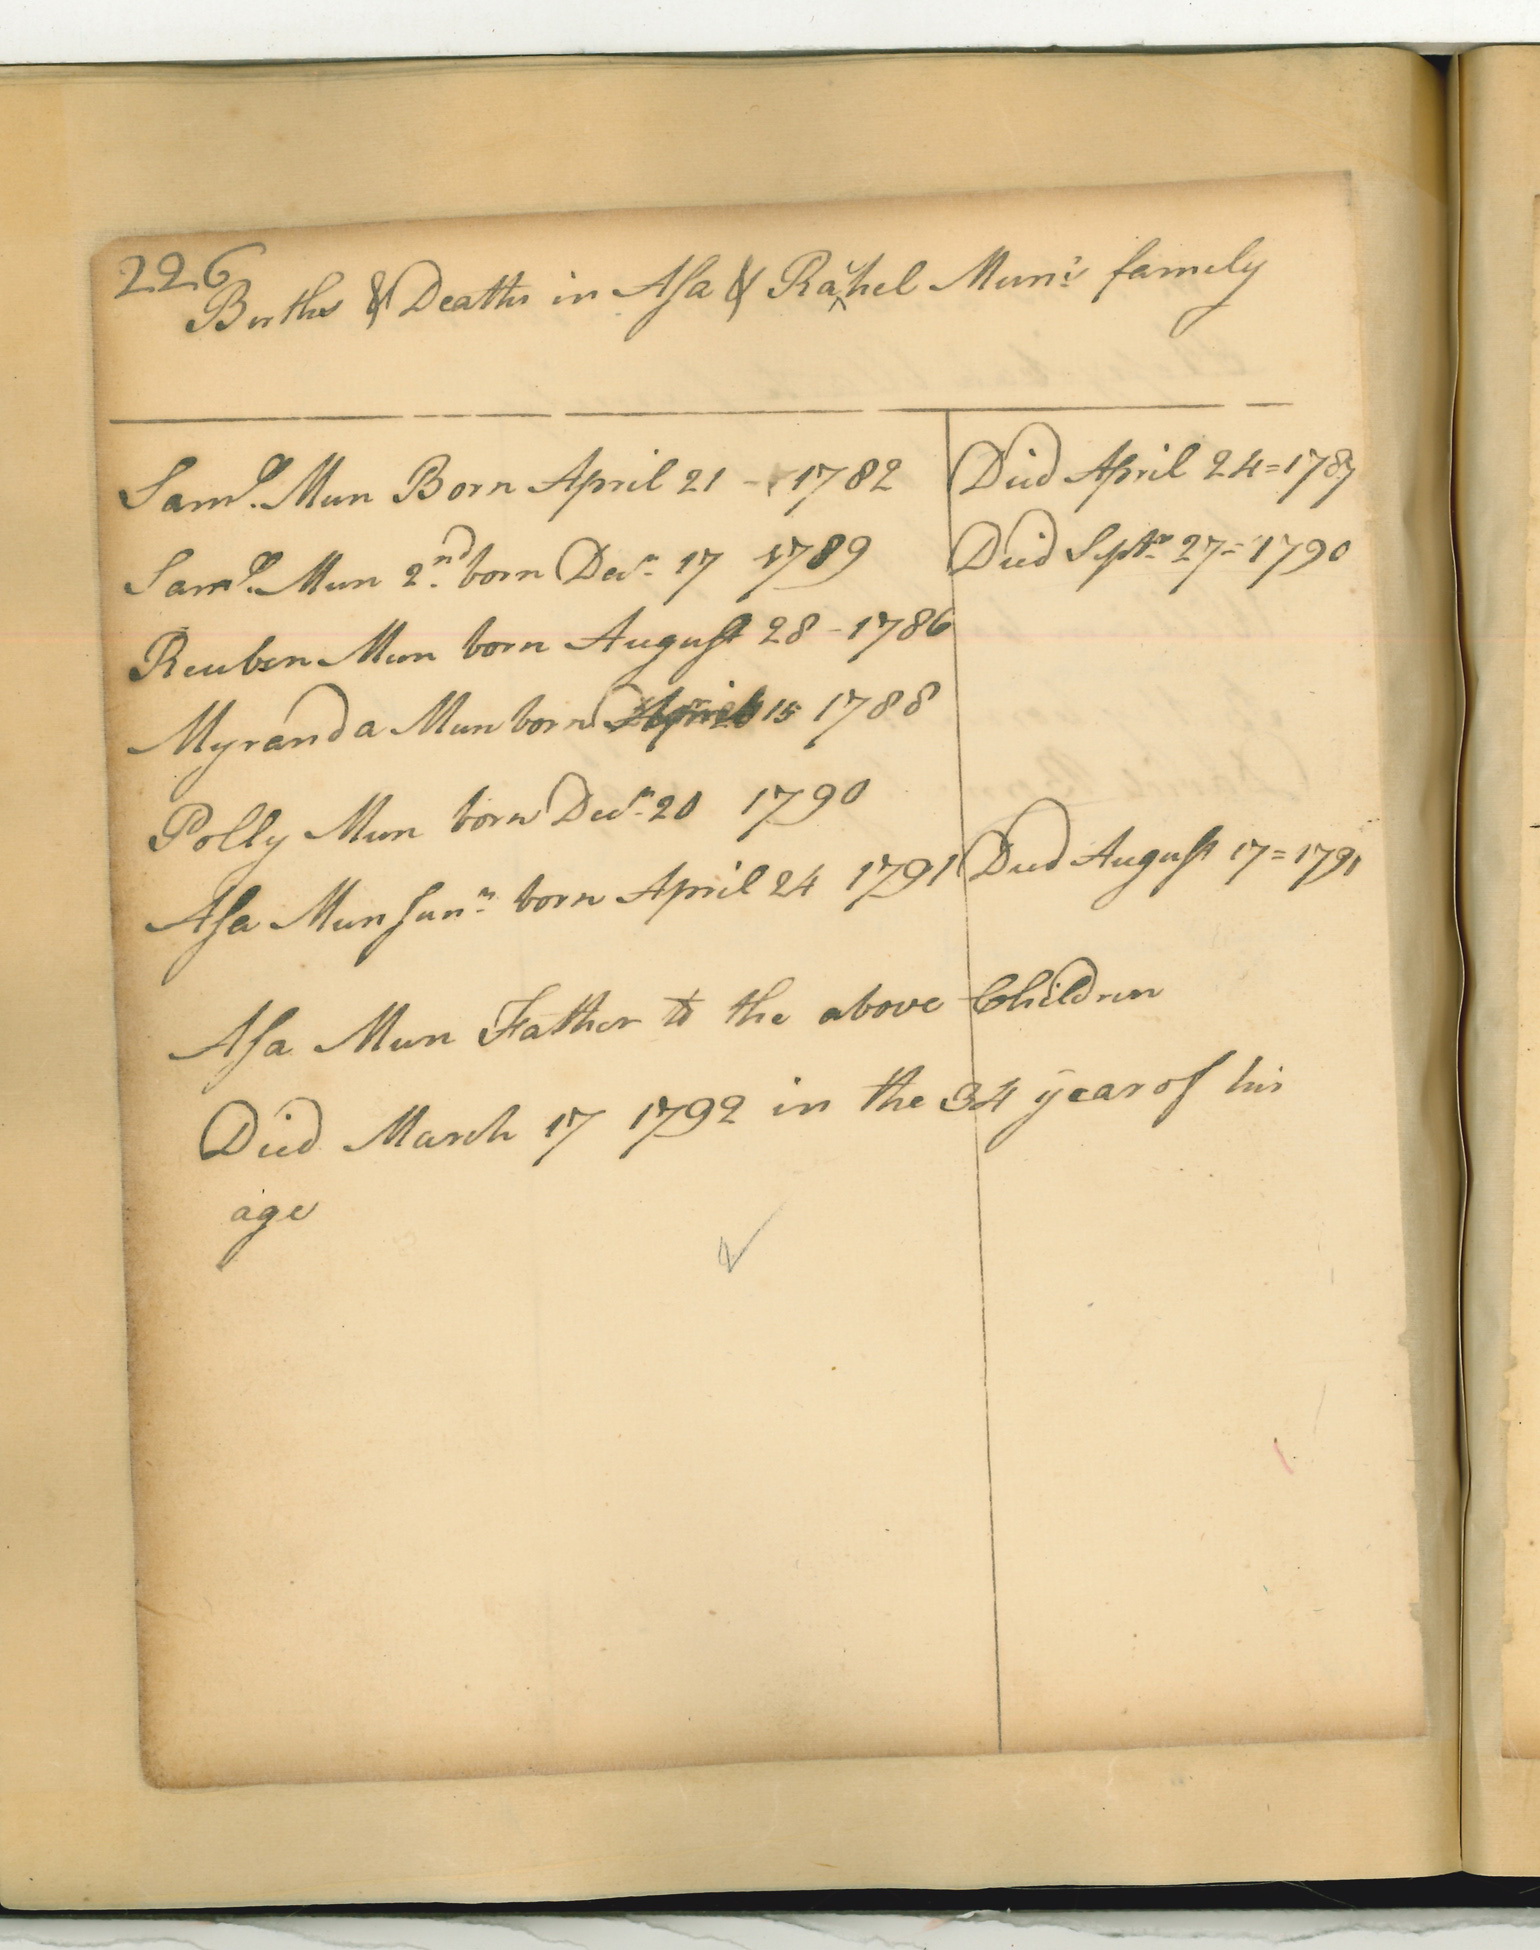 226
Births & Deaths in Asa & Rachel Mun's family
Saml. Mun Born April 21 - 1782 Died April 24=1787
Saml. Mun 2nd. born Decr. 17 1789 Died Septr. 27= 1790
Reuben Mun born August 28 - 1786
Myranda Mun born 15 1788
Polly Mun born Decr. 20 1790
Asa Mun Junr. born April 24 1791 Died August 17=1791
Asa Mun Father to the above Children
Died March 17 1792 in the 34 year of his
age